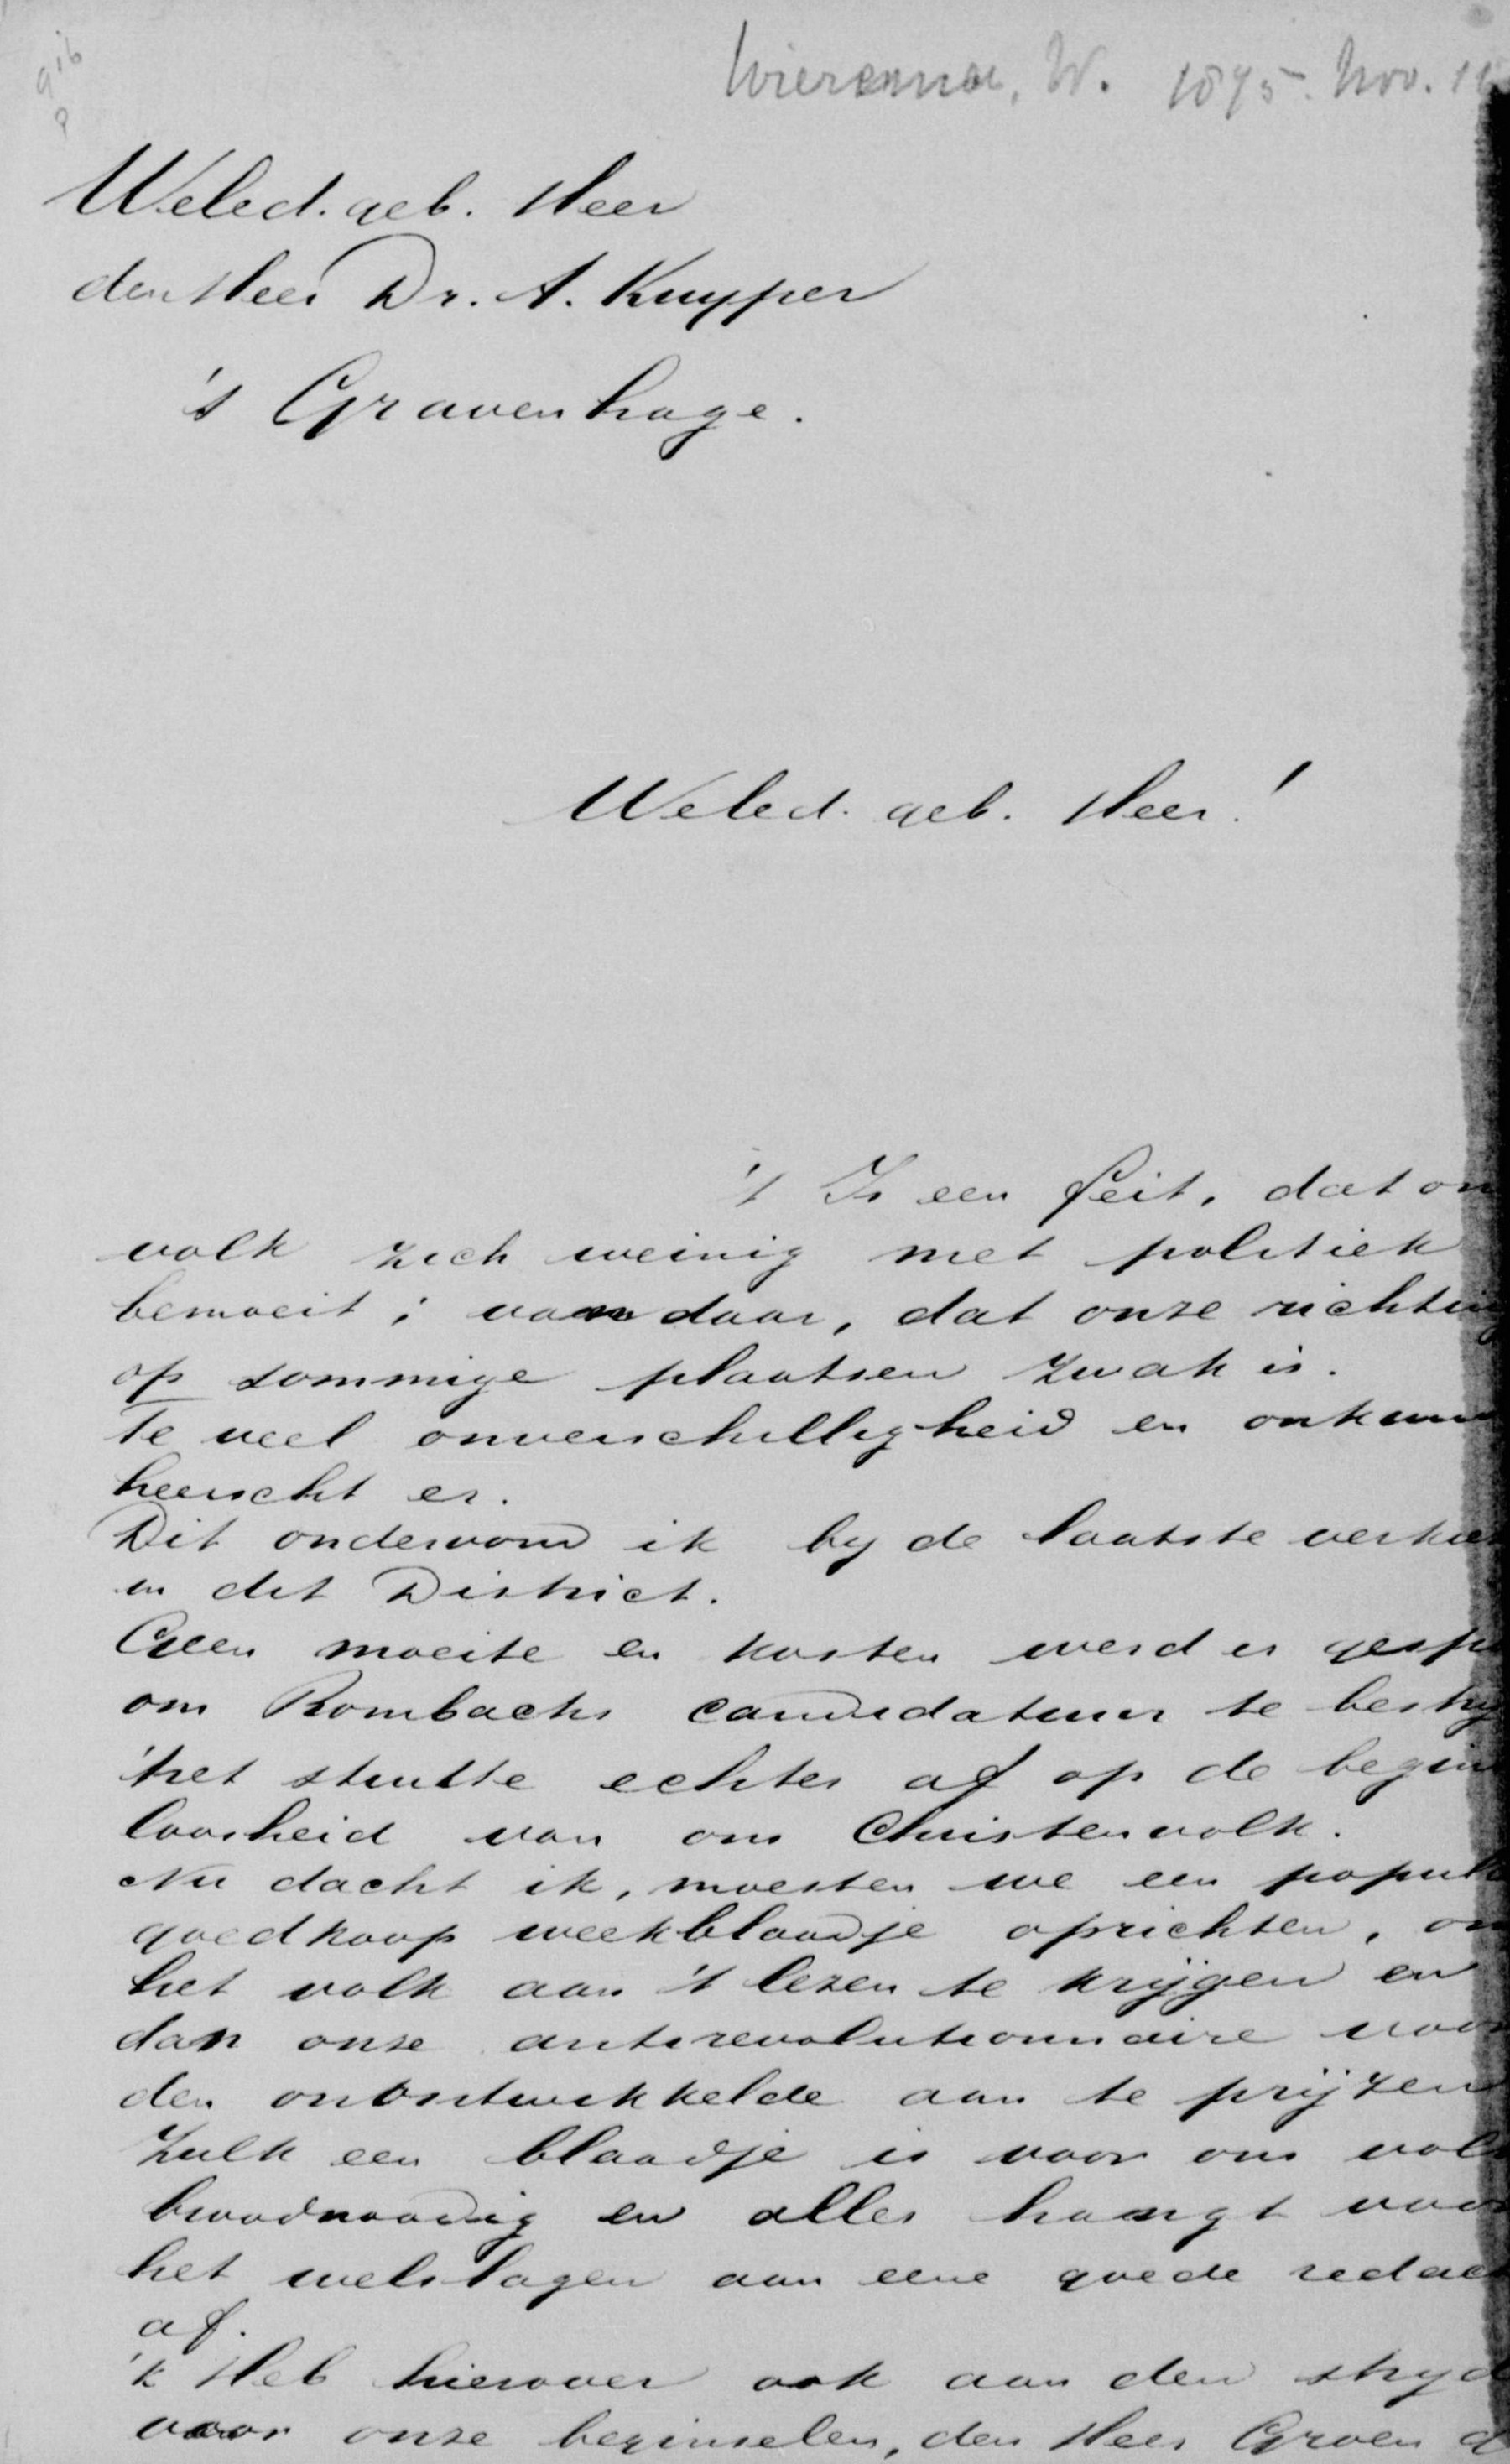 Wiersma, W. 1875. Nov. 16
Weled. geb. Heer
den Heer Dr. A. Kuyper
's Gravenhage.
Weled. geb. Heer!
't Is een feit, dat on
volk zich weinig met politiek
bemoeit; van daar, dat onze richting
op sommige plaatsen zwak is.
Te veel onverschilligheid en onkun
heerscht er.
Dit ondervond ik by de laatste verkie
in dit District.
Geen moeite en kosten werd er gesp
om Rombachs candidatuur te bestry
het stuitte echter af op de begin
loosheid van ons Christenvolk.
Nu dacht ik, moesten we een popul
goedkoop weekblaadje oprichten, om
het volk aan 't lezen te krijgen en
dan onze antirevolutionnaire voor
den onontwikkelde aan te prijzen
Zulk een blaadje is voor ons volk
broodnoodig en alles hangt voor
het welslagen aan eene goede redac
af.
'k Heb hierover ook aan den stryd
voor onze beginselen, den Heer Groen